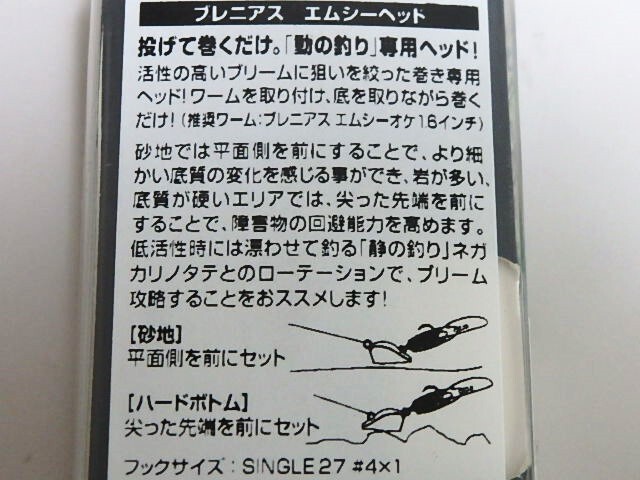 ブレニアス エムシーヘッド
投げて巻くだけ。「動の釣り」専用ヘッド!
活性の高いブリームに狙いを絞った巻き専用
ヘッド!ワームを取り付け、底を取りながら巻く
だけ!(推奨ワーム:ブレニアス エムシーオケ1.6インチ)
砂地では平面側を前にすることで、より細
かい底質の変化を感じる事ができ、岩が多い、
底質が硬いエリアでは、尖った先端を前に
することで、障害物の回避能力を高めます。
低活性時には漂わせて釣る「静の釣り」ネガ
カリノタテとのローテーションで、ブリーム
攻略することをおススメします!
[砂地]
平面側を前にセット
[ハードボトム]
尖った先端を前にセット
フックサイズ:SINGLE27 #4×1